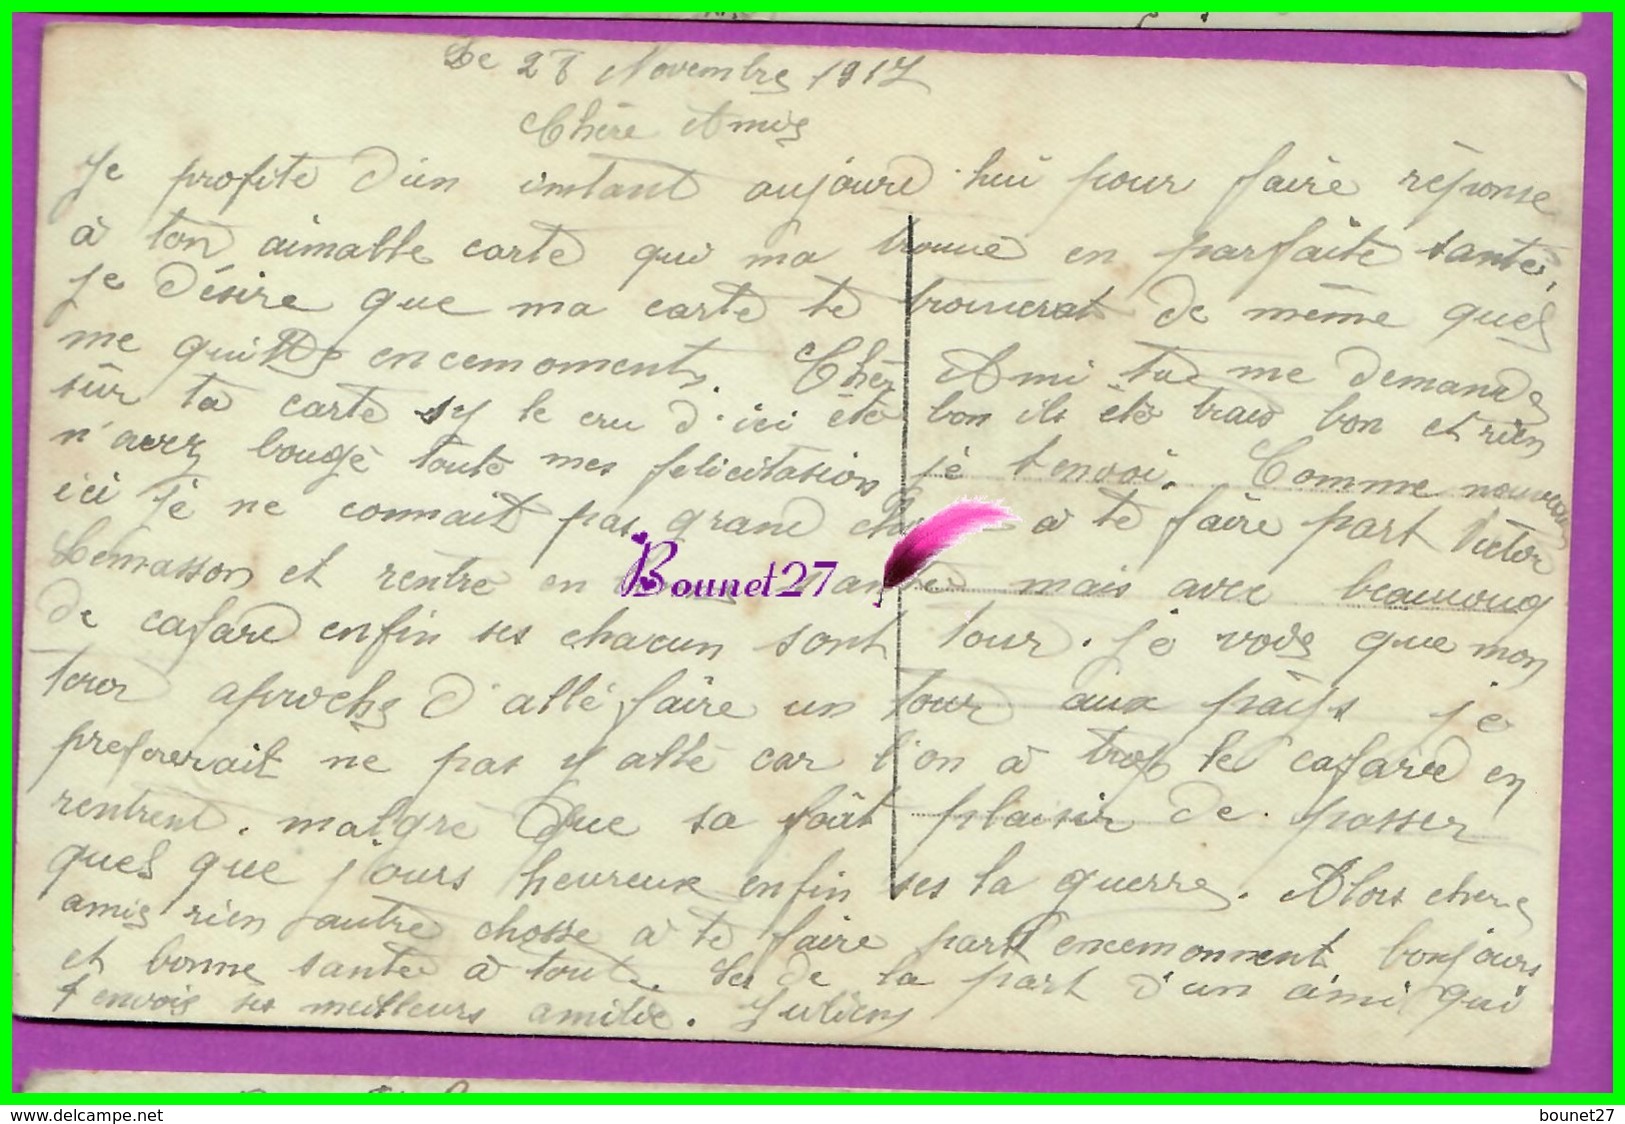 Le 28 Novembre 1917
Chère Amis
Je profite d'un instant aujourd'hui pour faire réponse
à ton aimable carte qui ma trouvé en parfaite santé,
je désire que ma carte te trouverat de même quel
me quitte encemoment. Chèr Ami tu me demande
sur ta carte sy le cru d'ici été bon ils été trais bon et rien
n'avez bougé toute mes felicitasion je t envoi. Comme nouveau
ici je ne connait pas grand à te faire part Victor
Lemasson et rentré en mais avec beaucoug
de cafard enfin ses chacun sont tour. je vois que mon
tour aproche d'allé faire un tour aux pays je
prefererait ne pas y allé car l'on à trop le cafard en
rentrent. malgré que sa fait plaisir de passer
quel que jours heureux enfin ses la guerre. Alors chere
amis rien autre chosse à te faire part encemonment bonjours
et bonne santé à tout. Ses de la part d'un ami qui
t envois ses meilleurs amitié. Julien
Bounet27
www.delcampe.net
bounet27